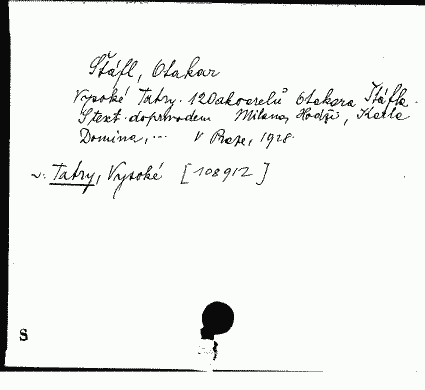 Štáfl, Otakar
Vysoké Tatry. 120 akvarelů Otakara Štáfla.
S text. doprovodem Milana Hodži, Karla
Domina,... V Praze, 1928.
v. Tatry, Vysoké [108912]
S